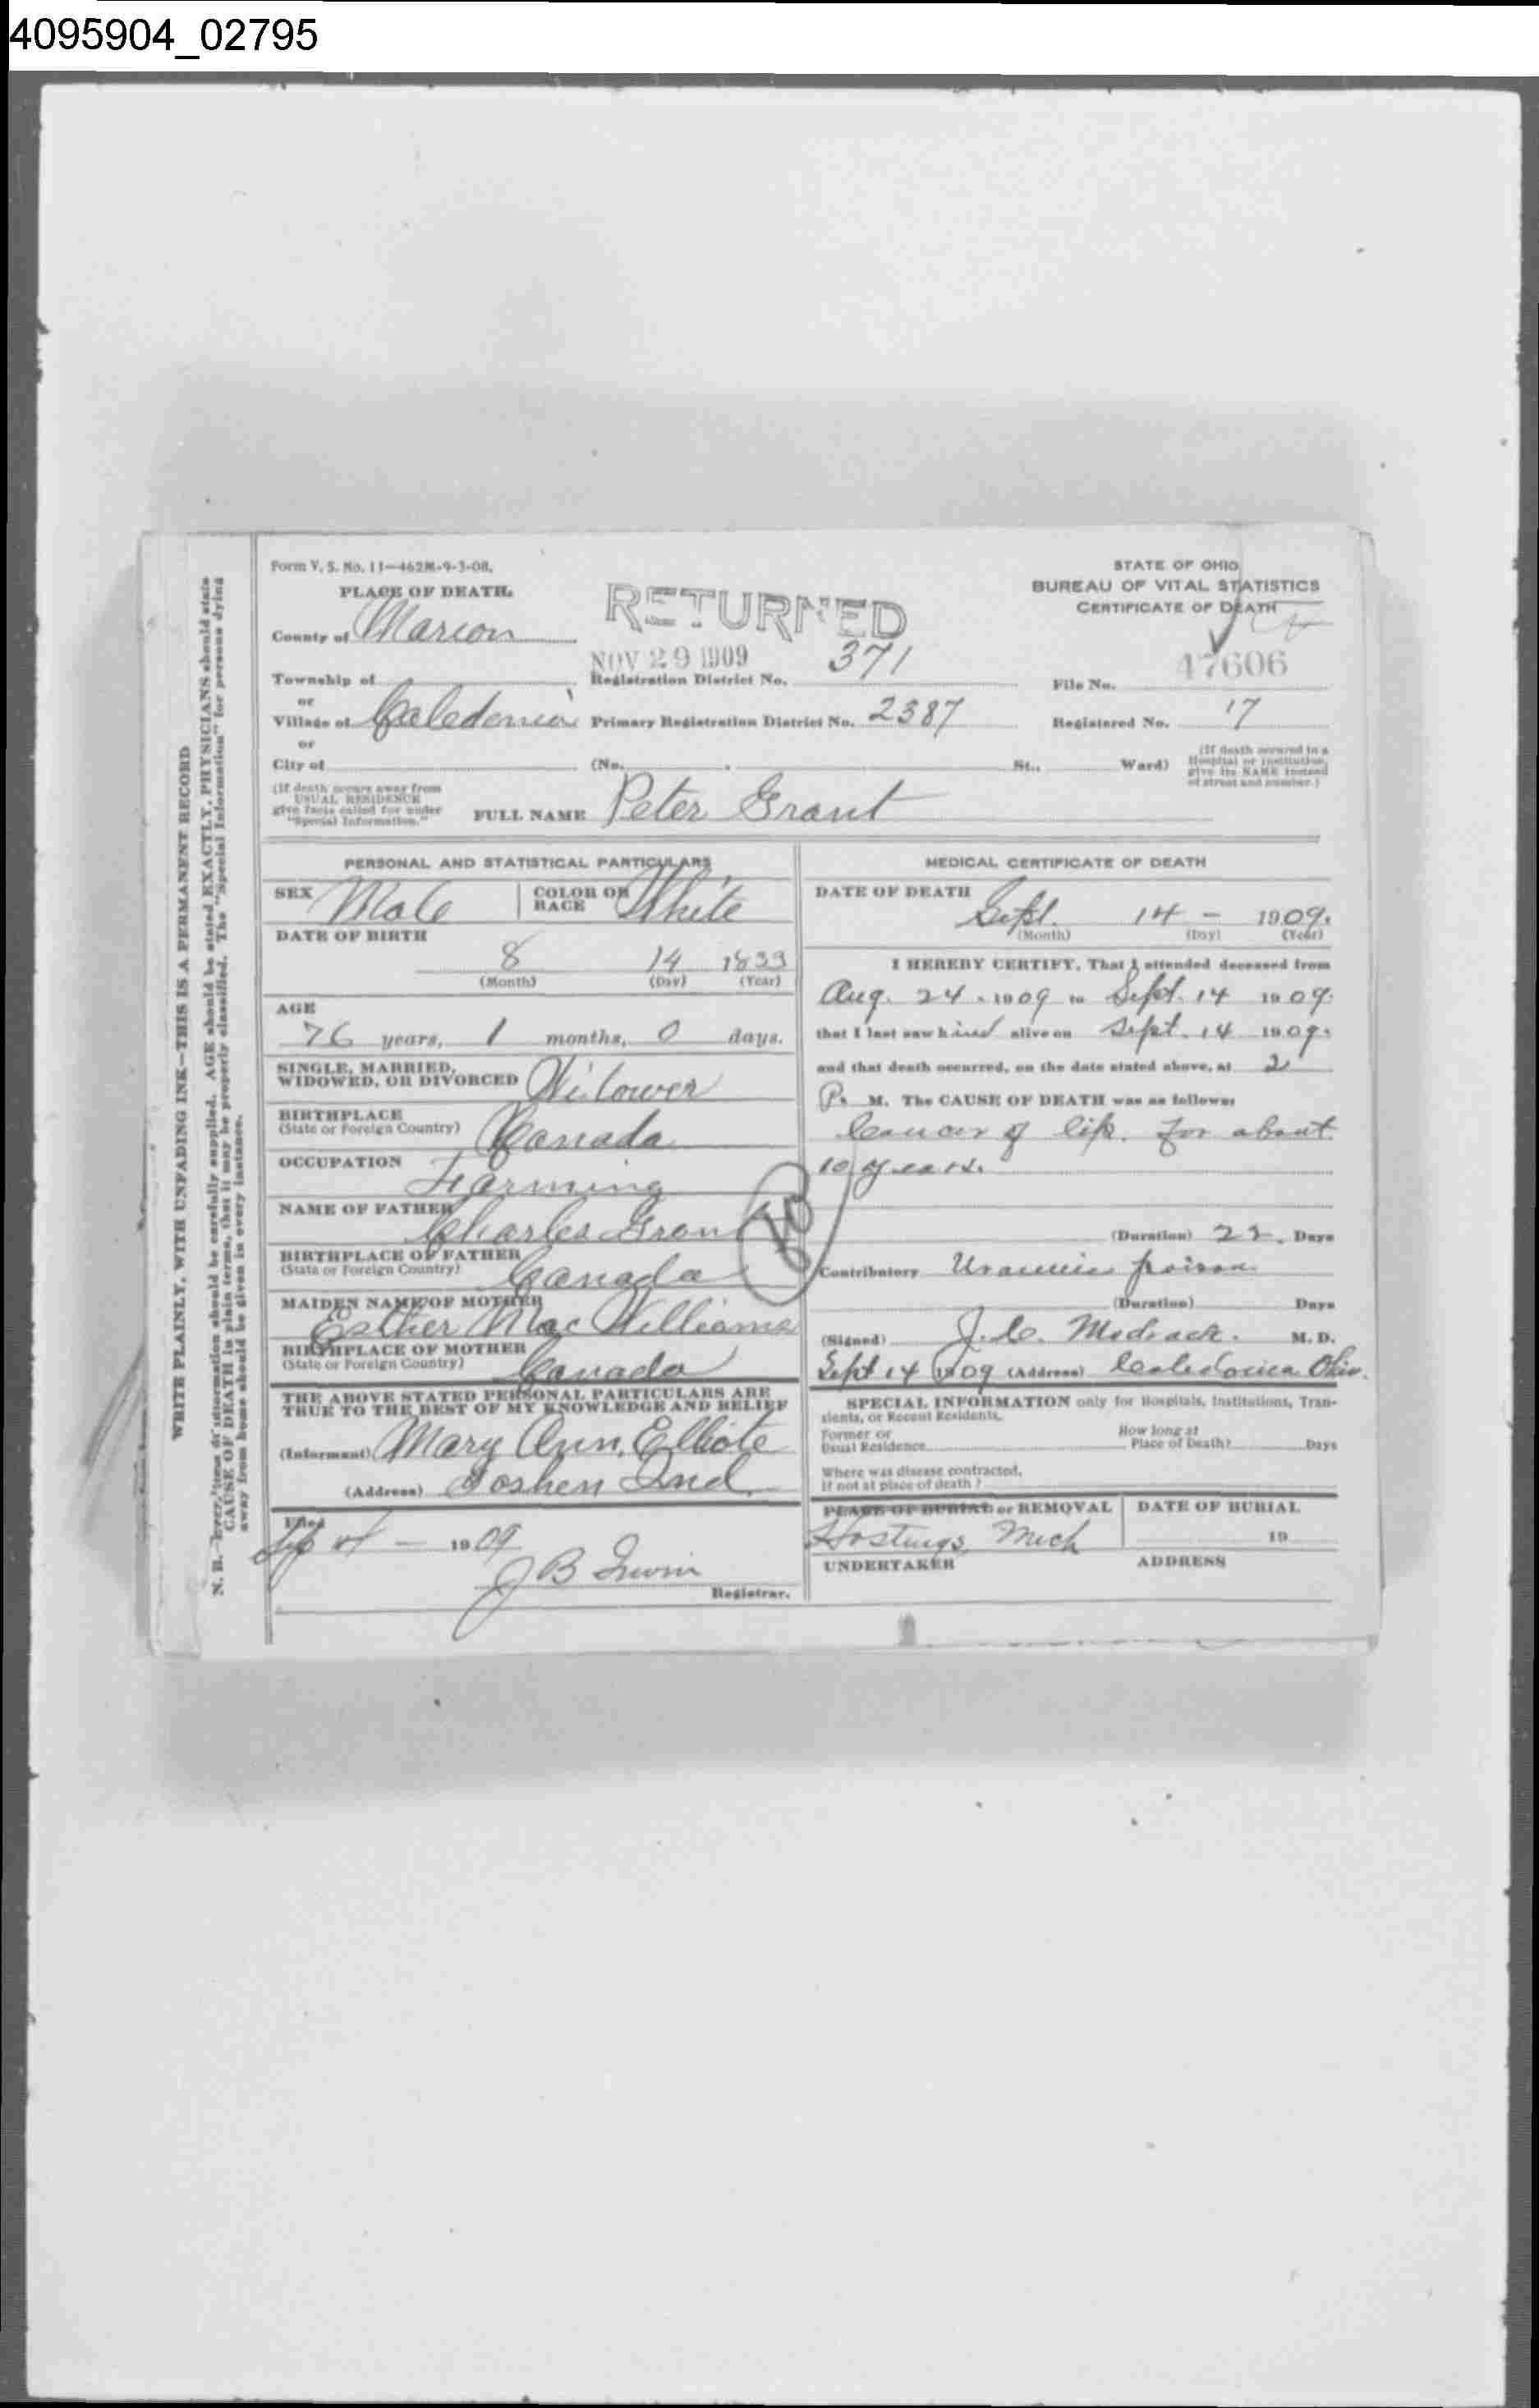 4095904_02795
Form V. S. No. 11-462M-9-3-08.
PLACE OF DEATH.
County of Marion
Township of
or
Village of Caledonia
or
City of
(No. St., Ward)
RETURNED
NOV 29 1909
Registration District No. 371
Primary Registration District No. 2387
STATE OF OHIO
BUREAU OF VITAL STATISTICS
CERTIFICATE OF DEATH
File No. 47606
Registered No. 17
(If death occurred in a
Hospital or institution,
give its NAME instead
of street and number.)
(If death occurs away from
USUAL RESIDENCE
give facts called for under
"Special Information."
FULL NAME Peter Grant
PERSONAL AND STATISTICAL PARTICULARS
SEX Male
COLOR OR RACE White
DATE OF BIRTH
8 14 1833
(Month) (Day) (Year)
AGE
76 years, 1 months, 0 days.
SINGLE, MARRIED,
WIDOWED, OR DIVORCED Wilower
BIRTHPLACE
(State or Foreign Country) Canada
OCCUPATION
Farming
NAME OF FATHER
Charles Grant
BIRTHPLACE OF FATHER
(State or Foreign Country) Canada
MAIDEN NAME OF MOTHER
Esther Mac Williams
BIRTHPLACE OF MOTHER
(State or Foreign Country) Canada
THE ABOVE STATED PERSONAL PARTICULARS ARE
TRUE TO THE BEST OF MY KNOWLEDGE AND BELIEF
(Informant) Mary Ann Elliote
(Address) Goshen Ind.
Filed
1909
J B Irwin
Registrar.
MEDICAL CERTIFICATE OF DEATH
DATE OF DEATH
Sept. 14 - 1909.
(Month) (Day) (Year)
I HEREBY CERTIFY, That I attended deceased from
Aug. 24 - 1909 to Sept. 14 1909.
that I last saw him alive on Sept. 14 1909.
and that death occurred, on the date stated above, at 2
P. M. The CAUSE OF DEATH was as follows:
Cancer of lip. for about
10 years.
(Duration) 22. Days
Contributory Uraemic poison
(Duration) Days
(Signed) J. C. M. D.
Sept 14 1909 (Address) Caledonia Ohio.
SPECIAL INFORMATION only for Hospitals, Institutions, Tran-
sients, or Recent Residents.
Former or
Usual Residence
How long at
Place of Death? Days
Where was disease contracted,
if not at place of death?
PLACE OF BURIAL or REMOVAL
Hostings, Mich
DATE OF BURIAL
19
UNDERTAKER
ADDRESS
WRITE PLAINLY, WITH UNFADING INK-THIS IS A PERMANENT RECORD
N. B.-Every item of information should be carefully supplied. AGE should be stated EXACTLY. PHYSICIANS should state
CAUSE OF DEATH in plain terms, that it may be properly classified. The "Special Information" for persons dying
away from home should be given in every instance.